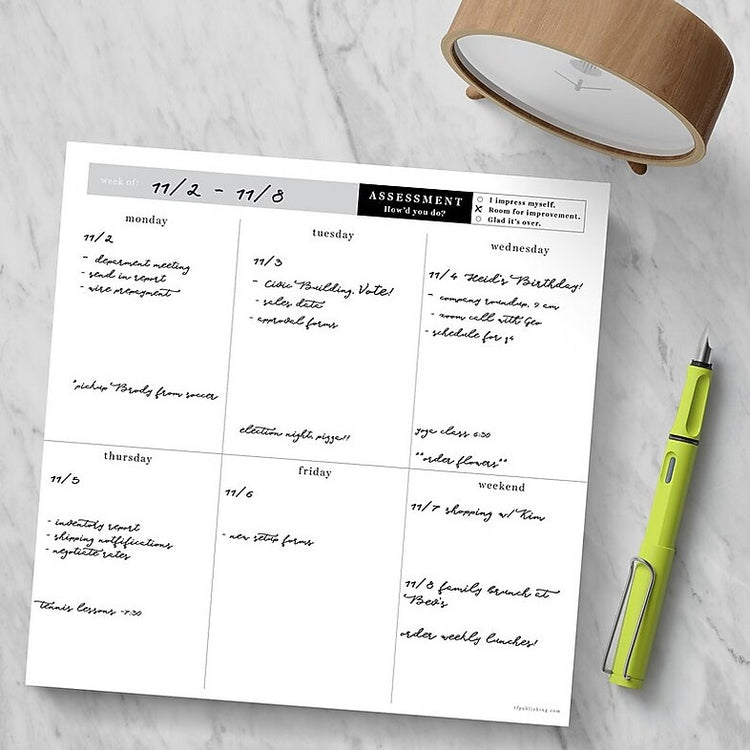 week of: 11/2 - 11/8
ASSESSMENT
How'd you do?
I impress myself.
Room for improvement.
Glad it's over.
monday
11/2
- deparment meeting
- send in report
- wire prepayment
"pickup" Brody from soccer
tuesday
11/3
- Civic Building, Vote!
- sales data
- approval forms
election night, pizza!!
wednesday
11/4 Heid's Birthday!
- company roundup, 9 am
- zoom call with Geo
- schedule for
yoga class 6:30
**order flowers**
thursday
11/5
- inventory report
- shipping notfifications
- negotiate rates
tennis lessons -7:30
friday
11/6
- new setup forms
weekend
11/7 shopping w/ Kim
11/8 family brunch at
Bev's
order weekly lunches!
tfpublishing.com